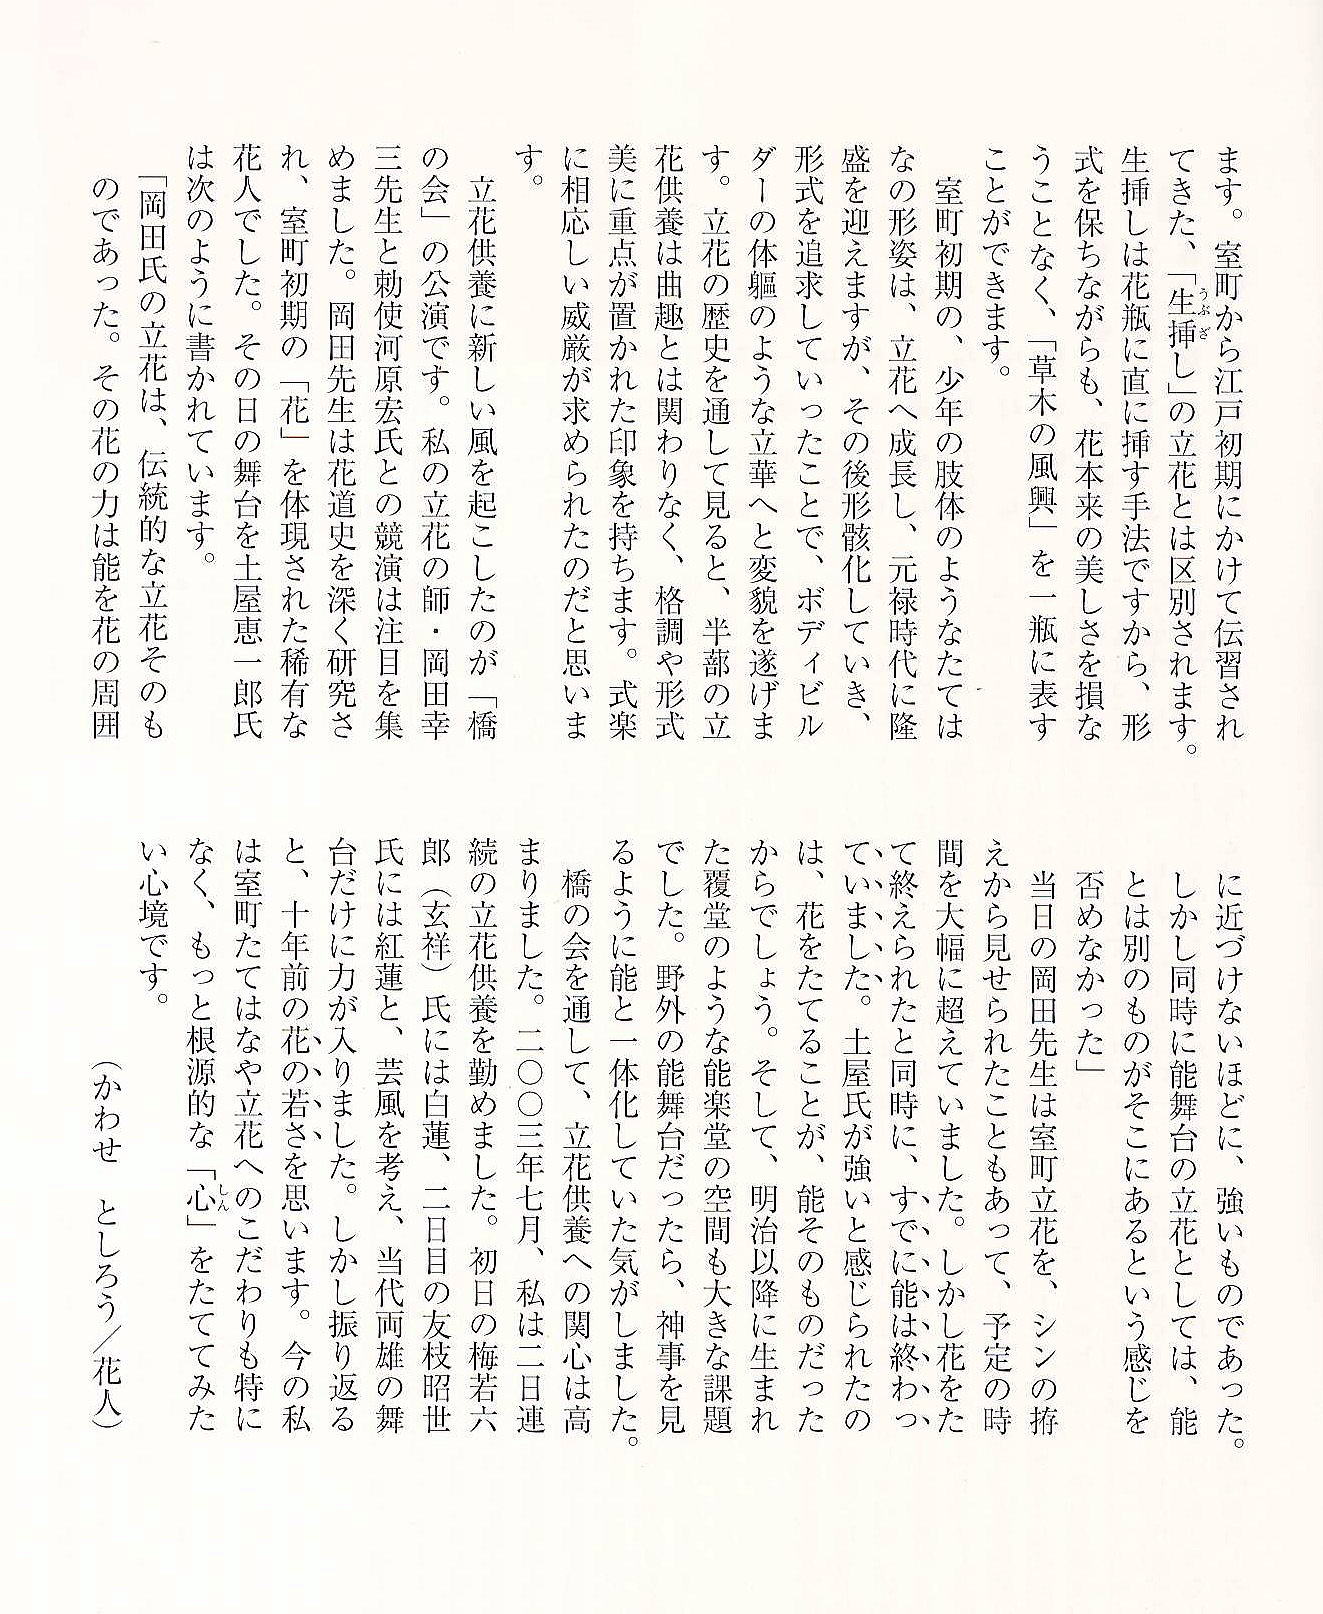 ます。室町から江戸初期にかけて伝習され
てきた、「生挿し」の立花とは区別されます。
うぶざ
生挿しは花瓶に直に挿す手法ですから、形
式を保ちながらも、花本来の美しさを損な
うことなく、「草木の風興」を一瓶に表す
ことができます。
室町初期の、少年の肢体のようなたては
なの形姿は、立花へ成長し、元禄時代に隆
盛を迎えますが、その後形骸化していき、
形式を追求していったことで、ボディビル
ダーの体軀のような立華へと変貌を遂げま
す。立花の歴史を通して見ると、半蔀の立
花供養は曲趣とは関わりなく、格調や形式
美に重点が置かれた印象を持ちます。式楽
に相応しい威厳が求められたのだと思いま
す。
立花供養に新しい風を起こしたのが「橋
の会」の公演です。私の立花の師・岡田幸
三先生と勅使河原宏氏との競演は注目を集
めました。岡田先生は花道史を深く研究さ
れ、室町初期の「花」を体現された稀有な
花人でした。その日の舞台を土屋恵一郎氏
は次のように書かれています。
「岡田氏の立花は、伝統的な立花そのも
のであった。その花の力は能を花の周囲
に近づけないほどに、強いものであった。
しかし同時に能舞台の立花としては、能
とは別のものがそこにあるという感じを
否めなかった」
当日の岡田先生は室町立花を、シンの拵
えから見せられたこともあって、予定の時
間を大幅に超えていました。しかし花をた
て終えられたと同時に、すでに能は終わっ
ていました。土屋氏が強いと感じられたの
は、花をたてることが、能そのものだった
からでしょう。そして、明治以降に生まれ
た覆堂のような能楽堂の空間も大きな課題
でした。野外の能舞台だったら、神事を見
るように能と一体化していた気がしました。
橋の会を通して、立花供養への関心は高
まりました。二〇〇三年七月、私は二日連
続の立花供養を勤めました。初日の梅若六
郎（玄祥）氏には白蓮、二日目の友枝昭世
氏には紅蓮と、芸風を考え、当代両雄の舞
台だけに力が入りました。しかし振り返る
と、十年前の花の若さを思います。今の私
は室町たてはなや立花へのこだわりも特に
なく、もっと根源的な「心」をたててみた
しん
い心境です。
（かわせ　としろう／花人）